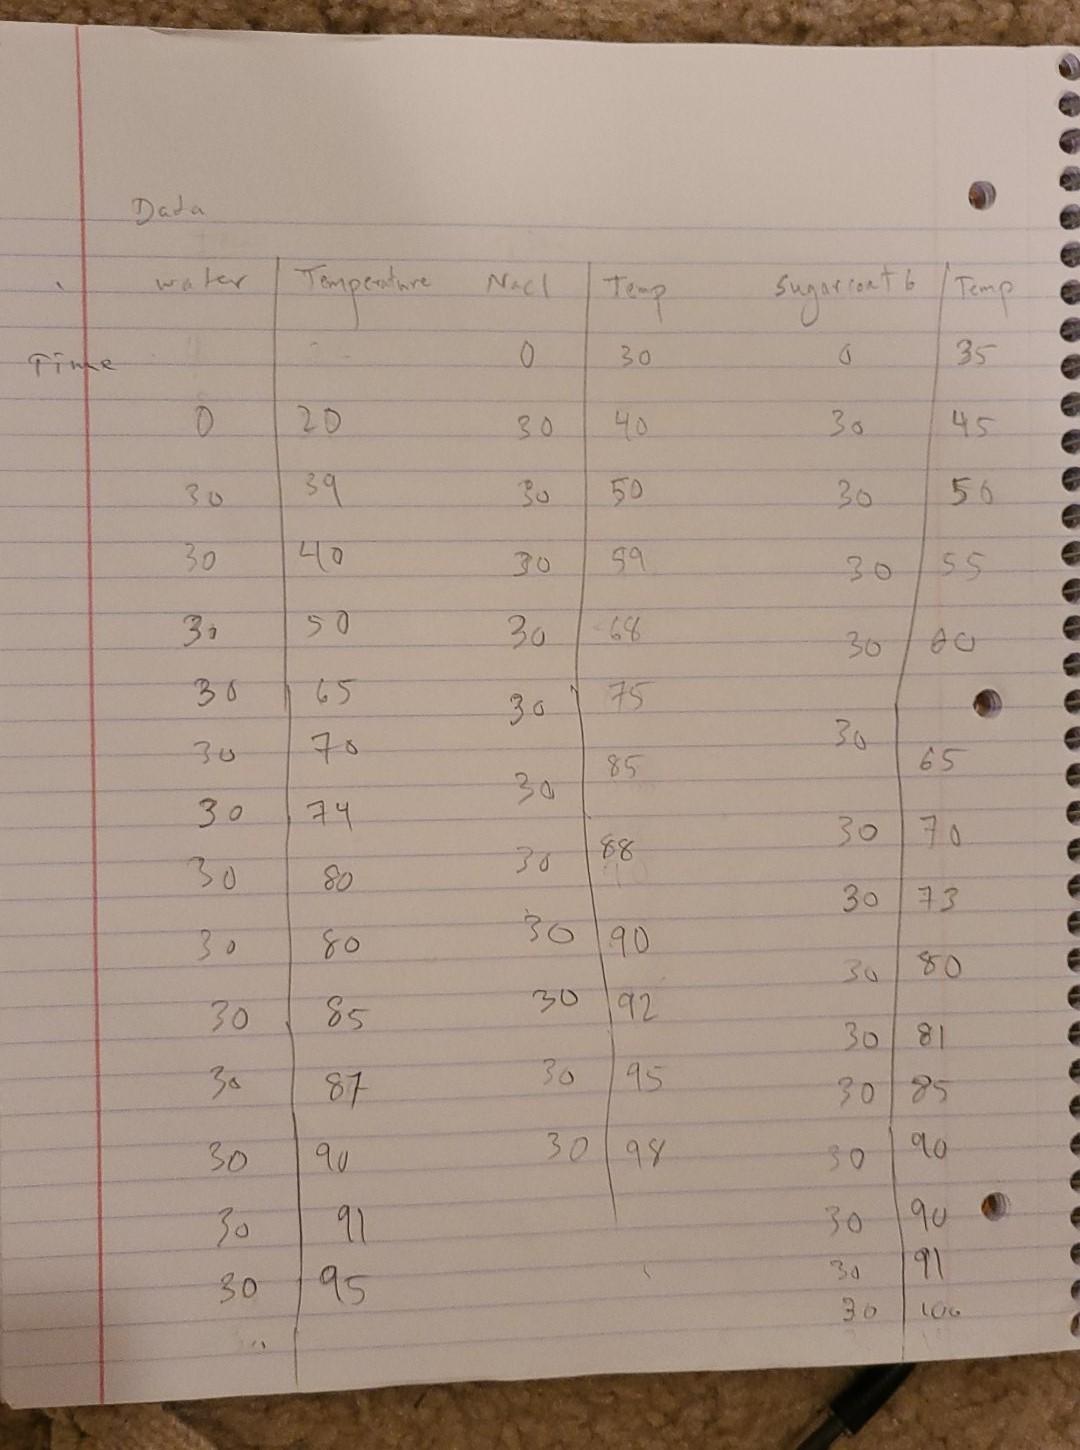 Data
water Temperature NaCl Temp Temp
Time 0 30 0 35
0 20 30 40 30 45
30 39 30 50 30 50
30 40 30 59 30 55
30 50 30 68 30 60
30 65 30 75 30 65
30 70 30 85 30 70
30 74 30 88 30 73
30 80 30 90 30 80
30 80 30 92 30 81
30 85 30 95 30 85
30 87 30 98 30 90
30 90 30 90
30 91 30 91
30 95 30 100